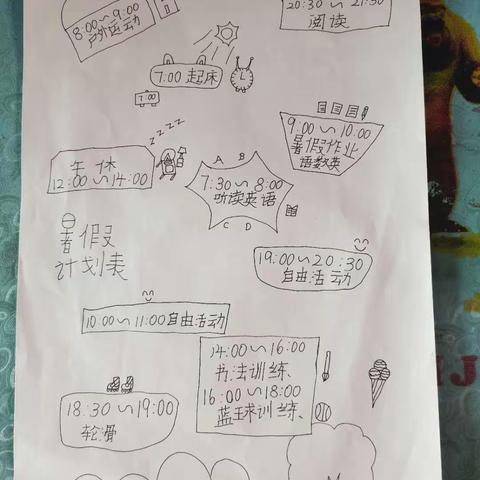 8:00~9:00
户外运动
20:30~21:30
阅读
7:00 起床
7:00
9:00~10:00
暑假作业
语数英
z z z z
午休
12:00~14:00
A B
7:30~8:00
听读英语
C D
暑假
计划表
19:00~20:30
自由活动
10:00~11:00自由活动
14:00~16:00
书法训练、
16:00~18:00
蓝球训练、
18:30~19:00
轮滑